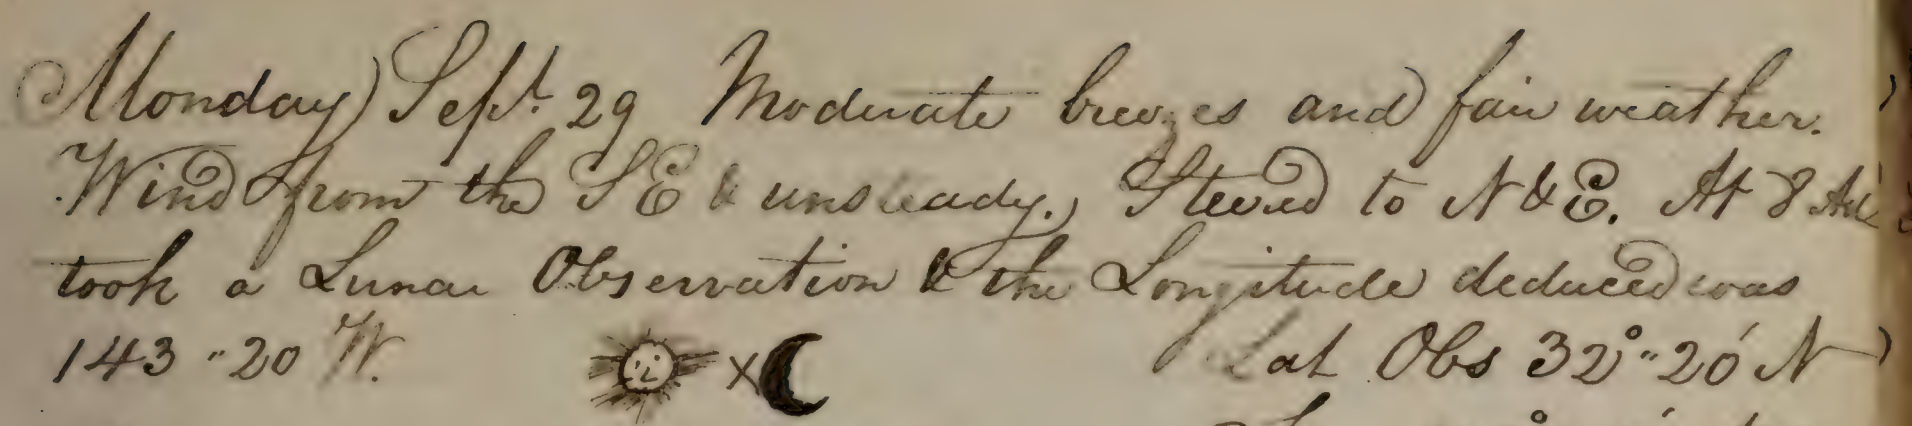 Monday Sept. 29 Moderate breezes and fair weather.
Wind from the SE & unsteady. Steered to N & E. At 8 AM
took a Lunar Observation & the Longitude deduced was
143 "20 W. Lat Obs 32°"20' N